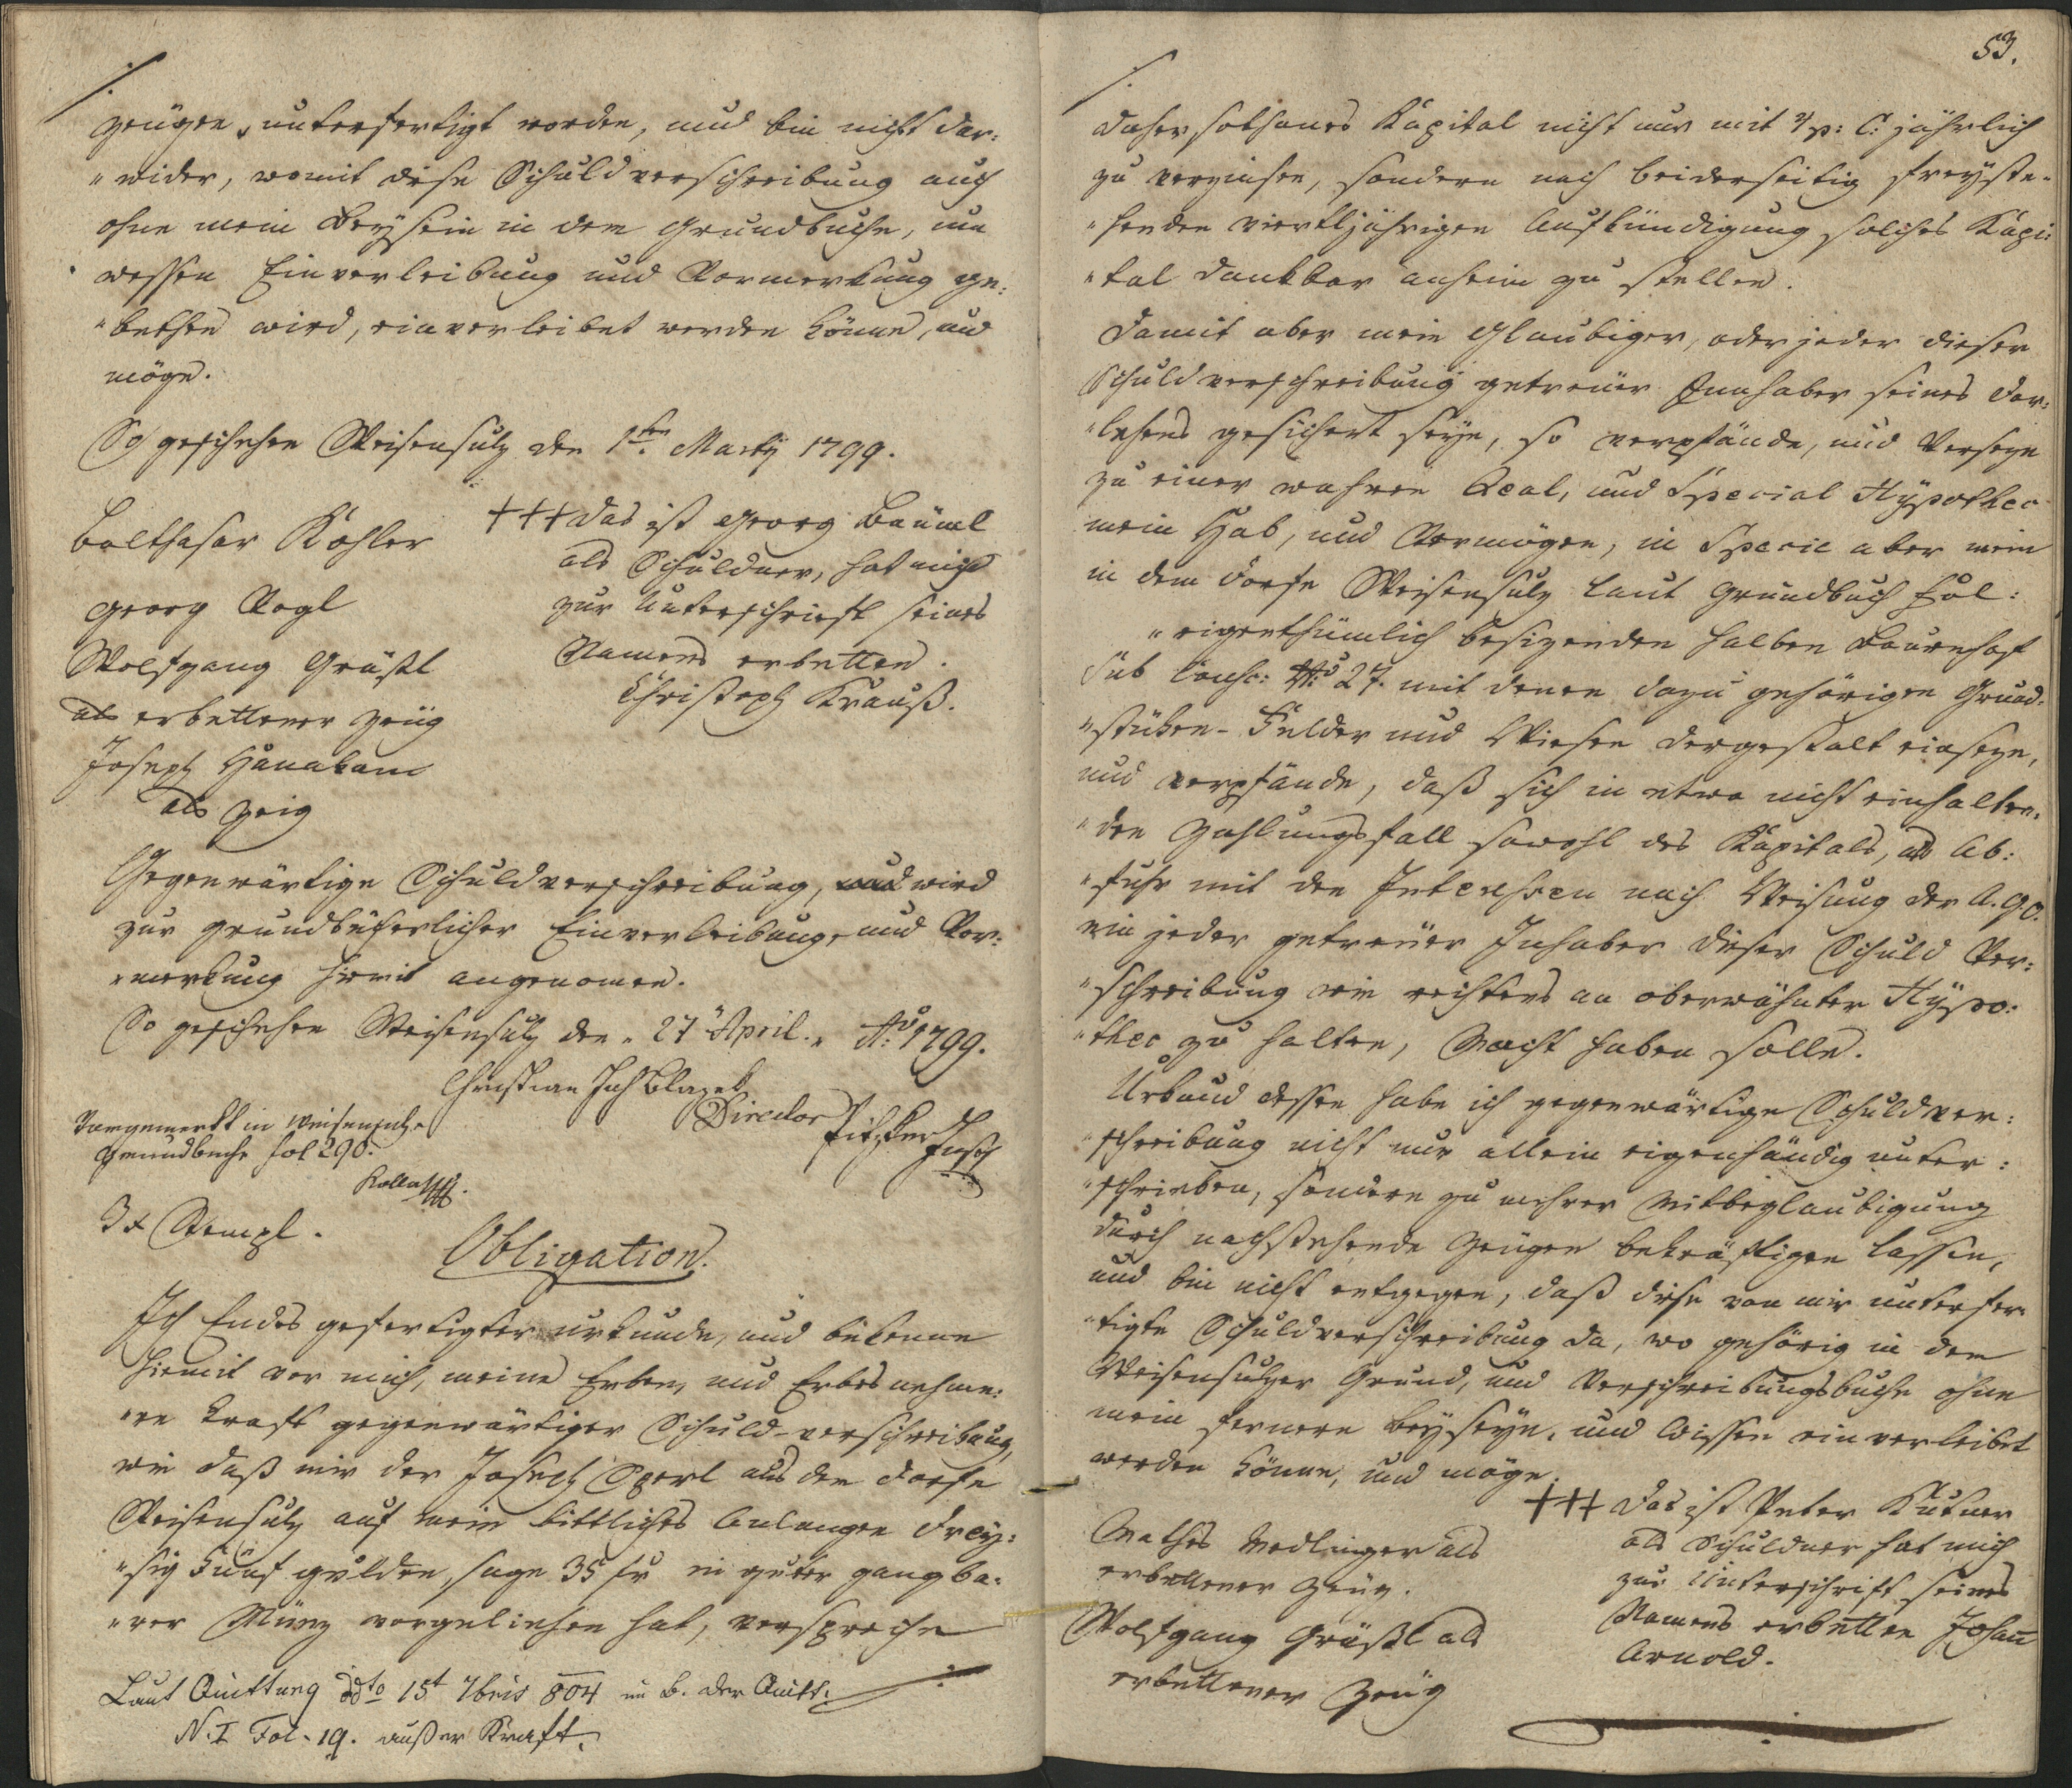 ./.
zeugen unterfertigt worden, und bin nicht dar:
"wider, womit diese Schuldverschreibung auch
ohne mein Beysein in dem Grundbuche, um
wessen Einverleibung und Vormerkung ge:
"bethen wird, einverleibet werden könne, und
möge.
So geschehen Weisensulz den 1ten Martÿ 1799.
Balthasar Köhler
Georg Vogl
Wolfgang Gräßl
als erbettener Zeüg
Joseph
als Zeig
+++ das ist Georg Bäuml
als Schuldner, hat mich
zur Unterschrieft seines
Namens erbetten.
Christoph Krauß.
Gegenwärtige Schuldverschreibung, wird
zur grundbücherlicher Einverleibung, und Vor:
"merkung hiemit angenomen.
So geschehen Weisensulz den 27 April Ao. 1799.
Christian
Director
Vorgemerkt in Weisensulz
Grundbuche fol 290.
3 x Stempl.
Obligation.
Ich Endes gefertigter urkunde, und bekenne
hiemit vor mich, meine Erben, und Erbesnehme:
"re kraft gegenwärtiger Schuld-verschreibung,
wie daß mir der Joseph Sperl aus dem Dorfe
Weisensulz auf mein bittliches Anlangen drey:
"sig fünf gulden, sage 35 fr in guter gangba:
"rer Münz vorgeliehen hat, verspreche
Laut Quittung ddto 15t 7bris 804 im B. der Quitt:
N. I Fol. 19. außer Kraft.
53.
./.
daher sothanes Kapital nicht nur mit 4 p: C: jährlich
zu verzinsen, sondern nach beiderseitig freyste-
"henden viertljährigen Aufkündigung solches Kapi:
"tal dankbar anheim zu stellen.
Damit aber mein Glaubiger, oder jeder dieser
Schuldverschreibung getreuer Innhaber seines Dar:
"lehens gesichert seye, so verpfände, und Verseze
zu einer wahren Real, und Special Hÿpothec
mein Hab, und Vermögen, in Specie aber mein
in dem Dorfe Weisensulz laut Grundbuch Fol:
"eigenthümlich besizenden halben Bauernhof
sub Consc: No 27. mit denen dazu gehörigen Grund-
"stüken- Felder und Wiesen dergestalt einseze,
und verpfände, daß sich in etwa nicht einhalten-
"den Zahlungsfall sowohl des Kapitals, als Ab:
"fuhr mit den Interessen nach Weisung der A. G. O.
ein jeder getreuer Inhaber dieser Schuld Ver:
"schreibung wie rechtens an oberwähnter Hÿpo:
"thec zu halten, Macht haben solle.
Urkund dessen habe ich gegenwärtige Schuldver:
"schreibung nicht nur allein eigenhändig unter:
"schrieben, sondern zu mehrer Mitbeglaubigung
durch nachstehende Zeugen bekräftigen lassen,
und bin nicht entgegen, daß diese von mir unterfer-
"tigte Schuldverschreibung da, wo gehörig in dem
Weisensulzer Grund, und Verschreibungsbuche ohne
mein fernere Beyseyn, und Wissen einverleibet
werden könne, und möge.
Mathes Medlinger als
erbettener Zeug.
Wolfgang Gräßl als
erbettener Zeüg
+++ das ist Peter Kutner
als Schuldner hat mich
zur Unterschrift seines
Namens erbetten Johann
Arnold.